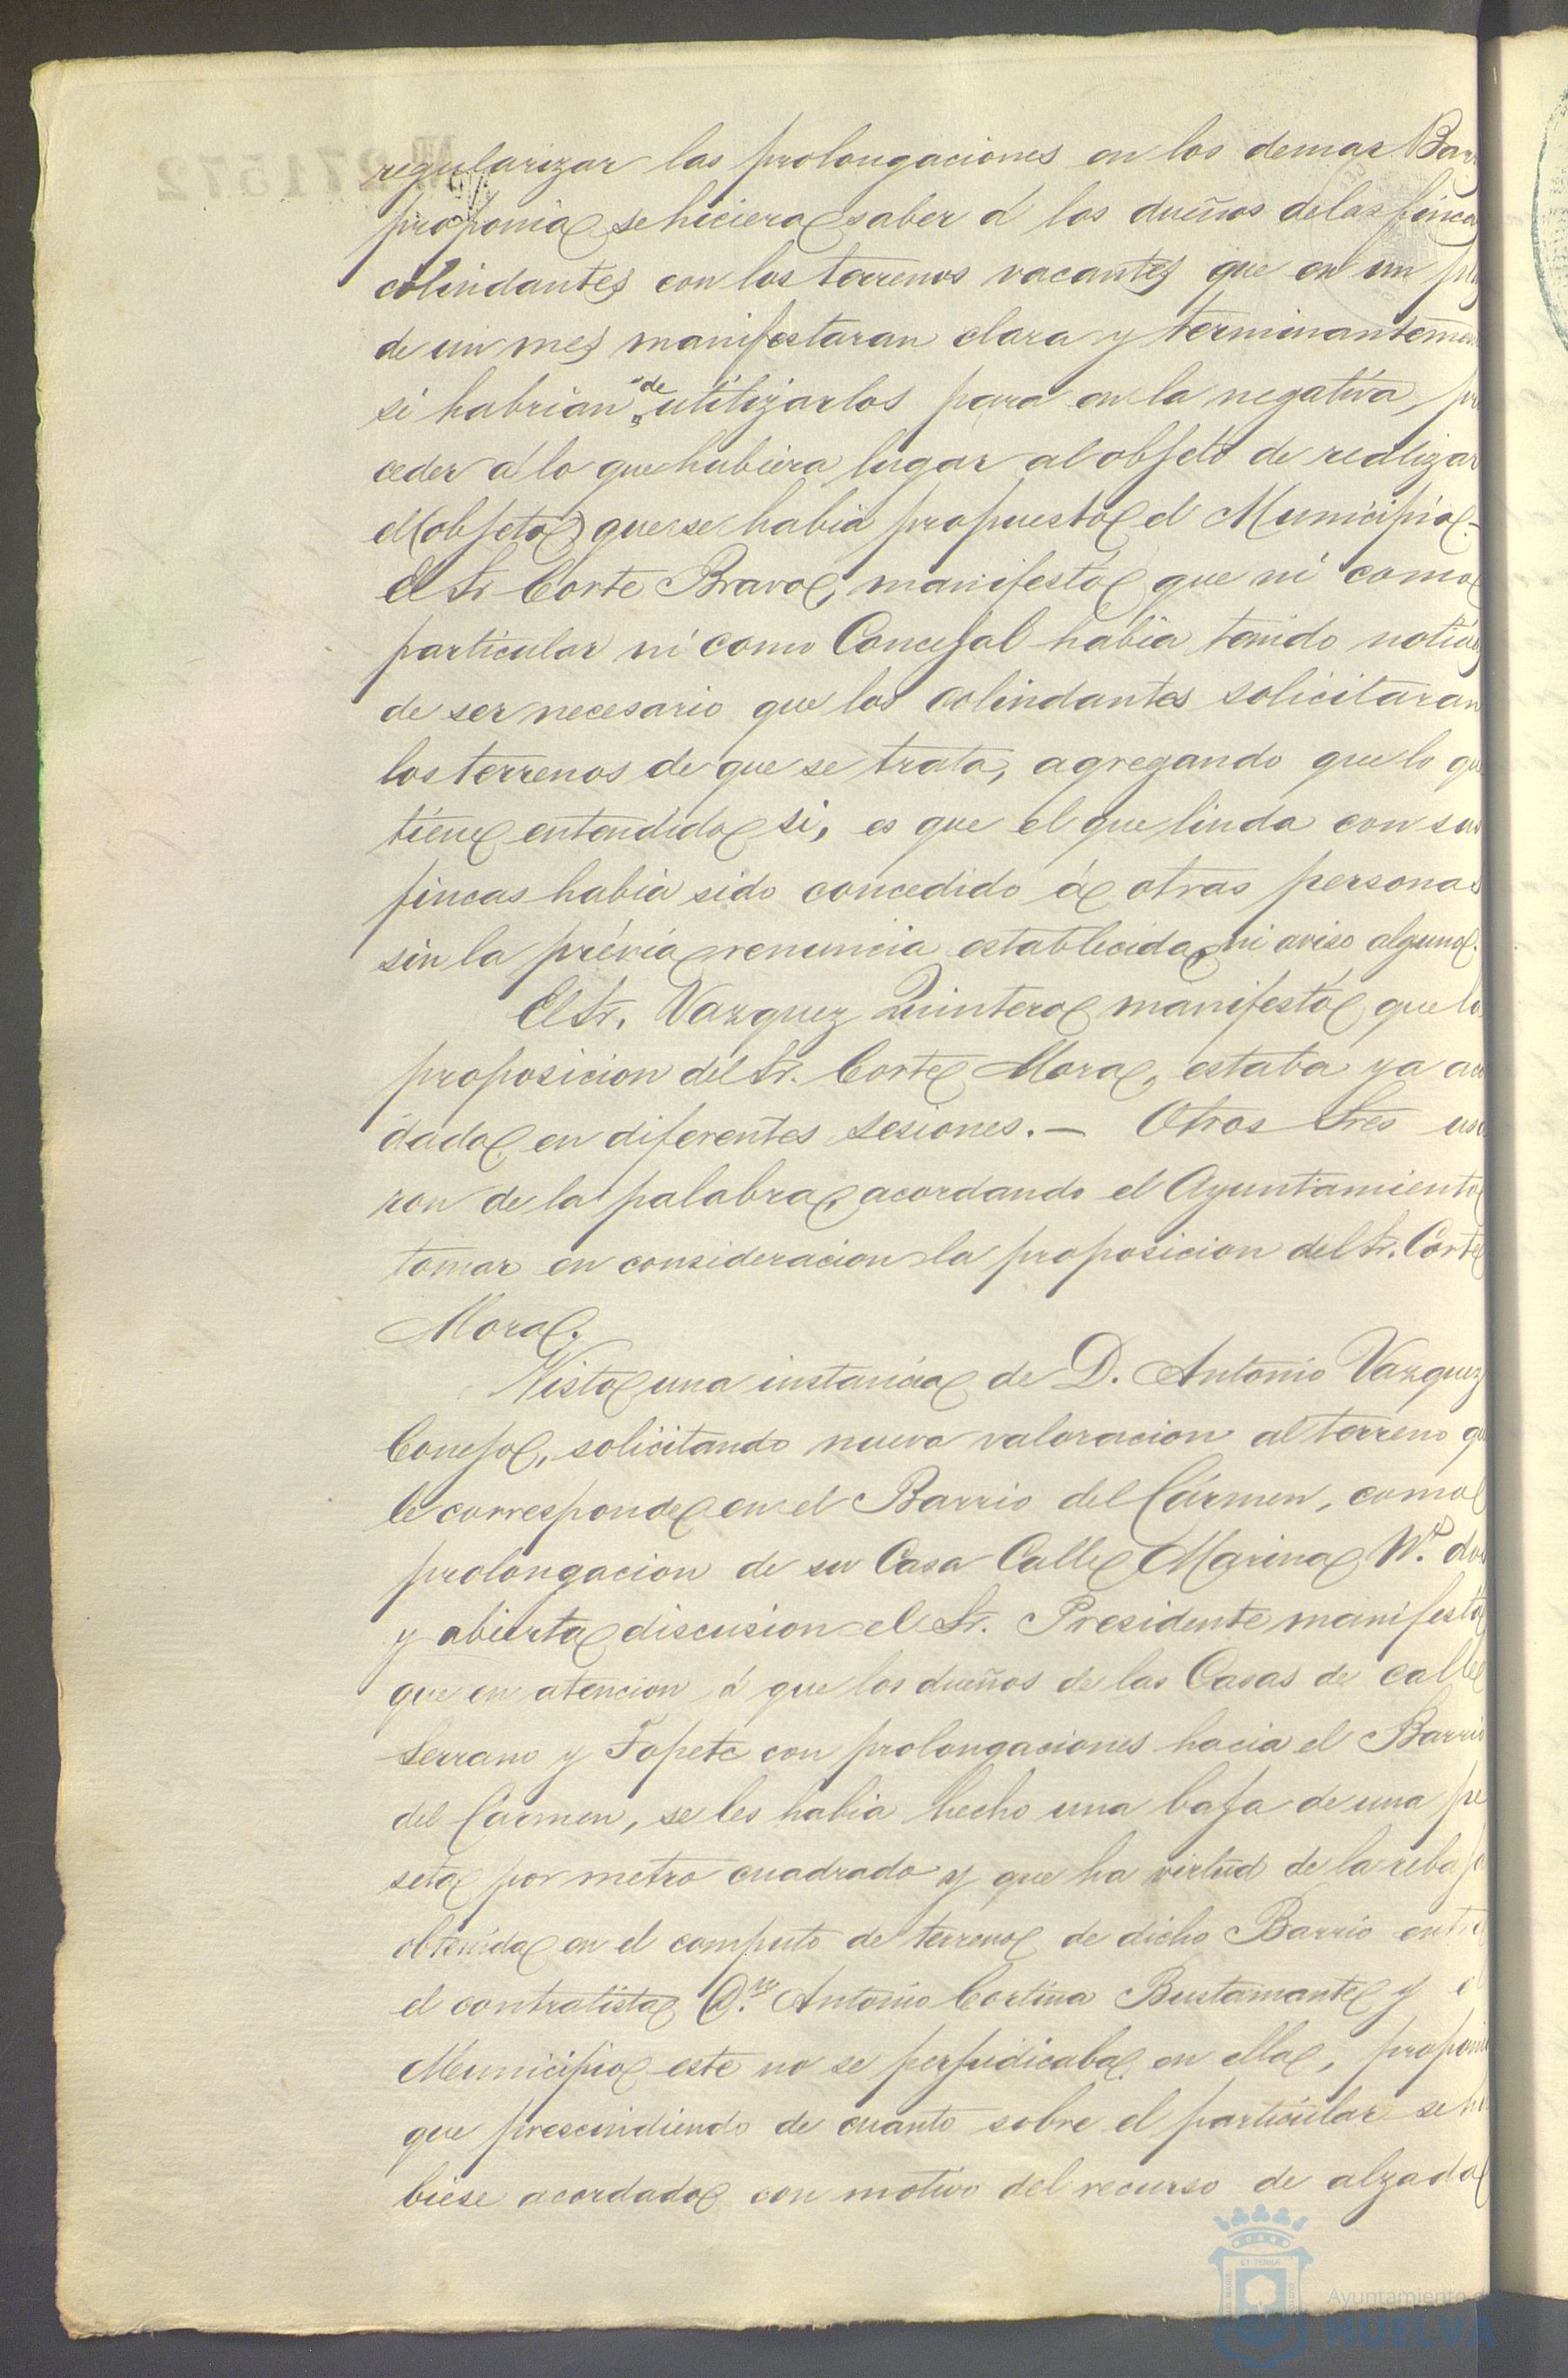 regularizar las prolongaciones en los demas Bar
proponia se hiciera saber á los dueños de las finca
colindantes con los terrenos vacantes que en un pla
de un mes manifestaran clara y terminantemen
si habrian de utilizarlos para en la negativa, pro
ceder á lo que hubiera lugar al objeto de realizar
el (objeto) que se habia propuesto el Municipio.-
El Sr Corte Bravo, manifestó que ni como
particular ni como Concejal habia tenido notici
de ser necesario que los colindantes solicitaran
los terrenos de que se trata, agregando que lo qu
tiene entendido si, es que el que linda con sus
fincas habia sido concedido á otras personas
sin la prévia renuncia establecida, ni aviso alguno.
El Sr. Vazquez Quintero manifestó que la
proposicion del Sr. Corte Mora, estaba ya aco
dado en diferentes sesiones.— Otros Sres usa
ron de la palabra, acordando el Ayuntamiento
tomar en consideracion la proposicion del Sr. Corte
Mora.
Visto una instancia de D. Antonio Vazquez
Conejo, solicitando nueva valoracion al terreno qu
le corresponde en el Barrio del Cármen, como
prolongacion de su Casa Calle Marina Nº. dos
y abierta discusion el Sr. Presidente manifestó
que en atencion á que los dueños de las Casas de calle
Serrano y Topete con prolongaciones hacia el Barrio
del Cármen, se les habia hecho una baja de una pe
seta por metro cuadrado y que ha virtud de la rebaja
obtenida en el computo de terreno de dicho Barrio entre
el contratista D.n Antonio Cortina Bustamante y el
Municipio este no se perjudicaba en ella, proponia
que prescindiendo de cuanto sobre el particular se hu
biese acordado con motivo del recurso de alzada
271572
Ayuntamiento de
HUELVA